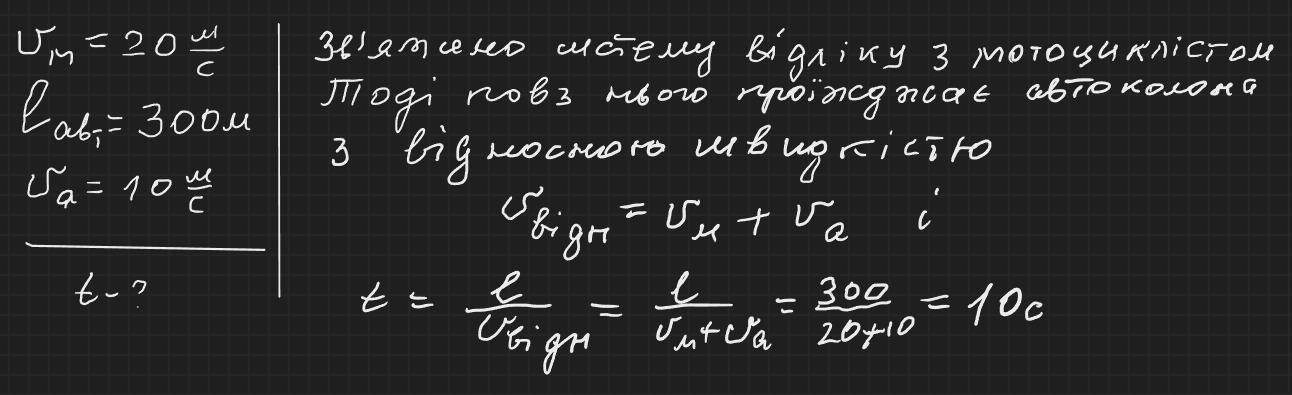 υм = 20 м/с
lавт = 300м
υа = 10 м/с
t - ?
Зв'яжемо систему відліку з мотоциклістом
Тоді повз нього проїжджає автоколона
з відносною швидкістю
υвідн = υм + υа і
t = l/υвідн = l/(υм+υа) = 300/(20+10) = 10с